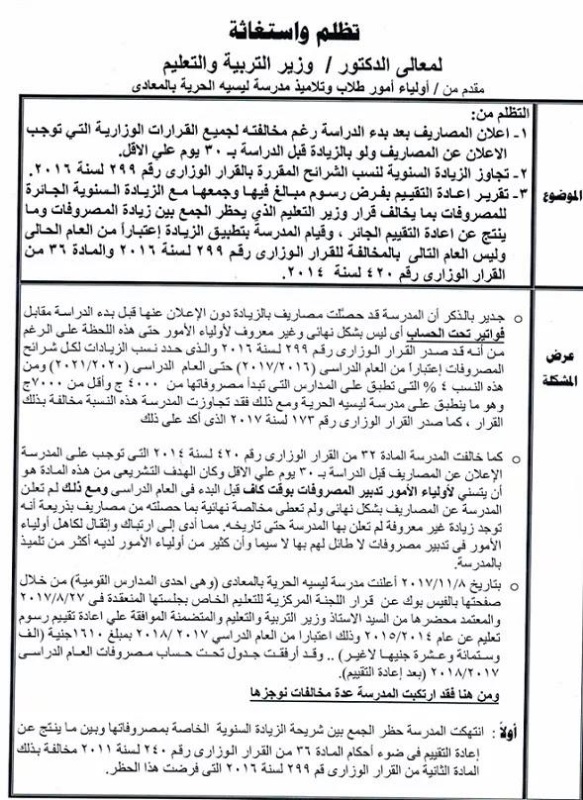 تظلم واستغاثة
لمعالى الدكتور / وزير التربية والتعليم
مقدم من / أولياء أمور طلاب وتلاميذ مدرسة ليسيه الحرية بالمعادى
الموضوع
التظلم من:
١- اعلان المصاريف بعد بدء الدراسة رغم مخالفته لجميع القرارات الوزارية التي توجب
الاعلان عن المصاريف ولو بالزيادة قبل الدراسة بـ ٣٠ يوم علي الاقل.
٢- تجاوز الزيادة السنوية لنسب الشرائح المقررة بالقرار الوزارى رقم ٢٩٩ لسنة ٢٠١٦.
٣- تقرير اعادة التقييم بفرض رسوم مبالغ فيها وجمعها مع الزيادة السنوية الجائرة
للمصروفات بما يخالف قرار وزير التعليم الذي يحظر الجمع بين زيادة المصروفات وما
ينتج عن اعادة التقييم الجائر ، وقيام المدرسة بتطبيق الزيادة إعتباراً من العام الحالى
وليس العام التالى بالمخالفة للقرار الوزارى رقم ٢٩٩ لسنة ٢٠١٦ والمادة ٣٦ من
القرار الوزارى رقم ٤٢٠ لسنة ٢٠١٤.
عرض
المشكلة
○ جدير بالذكر أن المدرسة قد حصلت مصاريف بالزيادة دون الإعلان عنها قبل بدء الدراسة مقابل
فواتير تحت الحساب أى ليس بشكل نهائى وغير معروف لأولياء الأمور حتى هذه اللحظة على الرغم
من أنه قد صدر القرار الوزارى رقم ٢٩٩ لسنة ٢٠١٦ والذى حدد نسب الزيادات لكل شرائح
المصروفات إعتباراً من العام الدراسى (٢٠١٦/٢٠١٧) حتى العام الدراسى (٢٠٢٠/٢٠٢١) ومن
هذه النسب ٤ % التى تطبق على المدارس التى تبدأ مصروفاتها من ٤٠٠٠ ج وأقل من ٧٠٠٠ج
وهو ما ينطبق على مدرسة ليسيه الحرية ومع ذلك فقد تجاوزت المدرسة هذه النسبة مخالفة بذلك
القرار ، كما صدر القرار الوزارى رقم ١٧٣ لسنة ٢٠١٧ الذى أكد على ذلك
○ كما خالفت المدرسة المادة ٣٢ من القرار الوزارى رقم ٤٢٠ لسنة ٢٠١٤ التى توجب على المدرسة
الإعلان عن المصاريف قبل الدراسة بـ ٣٠ يوم علي الاقل وكان الهدف التشريعى من هذه المادة هو
أن يتسني لأولياء الأمور تدبير المصروفات بوقت كاف قبل البدء فى العام الدراسى ومع ذلك لم تعلن
المدرسة عن المصاريف بشكل نهائى ولم تعطى مخالصة نهائية بما حصلته من مصاريف بذريعة أنه
توجد زيادة غير معروفة لم تعلن بها المدرسة حتى تاريخه. مما أدى إلى ارتباك وإثقال لكاهل أولياء
الأمور فى تدبير مصروفات لا طائل لهم بها لا سيما وأن كثير من أولياء الأمور لديه أكثر من تلميذ
بالمدرسة.
○ بتاريخ ٢٠١٧/١١/٨ أعلنت مدرسة ليسيه الحرية بالمعادى (وهى احدى المدارس القومية) من خلال
صفحتها بالفيس بوك عن قرار اللجنة المركزية للتعليم الخاص بجلستها المنعقدة فى ٢٠١٧/٨/٢٧
والمعتمد محضرها من السيد الاستاذ وزير التربية والتعليم والمتضمنة الموافقة علي اعادة تقييم رسوم
تعليم عن عام ٢٠١٥/٢٠١٤ وذلك اعتبارا من العام الدراسي ٢٠١٧/ ٢٠١٨ بمبلغ ١٦١٠جنية (الف
وستمانة وعشرة جنيها لاغير) .. وقد أرفقت جدول تحت حساب مصروفات العام الدراسى
٢٠١٨/٢٠١٧ (بعد إعادة التقييم).
ومن هنا فقد ارتكبت المدرسة عدة مخالفات نوجزها
أولاً : انتهكت المدرسة حظر الجمع بين شريحة الزيادة السنوية الخاصة بمصروفاتها وبين ما ينتج عن
إعادة التقييم فى ضوء أحكام المادة ٣٦ من القرار الوزارى رقم ٢٤٠ لسنة ٢٠١١ مخالفة بذلك
المادة الثانية من القرار الوزارى رقم ٢٩٩ لسنة ٢٠١٦ التى فرضت هذا الحظر.